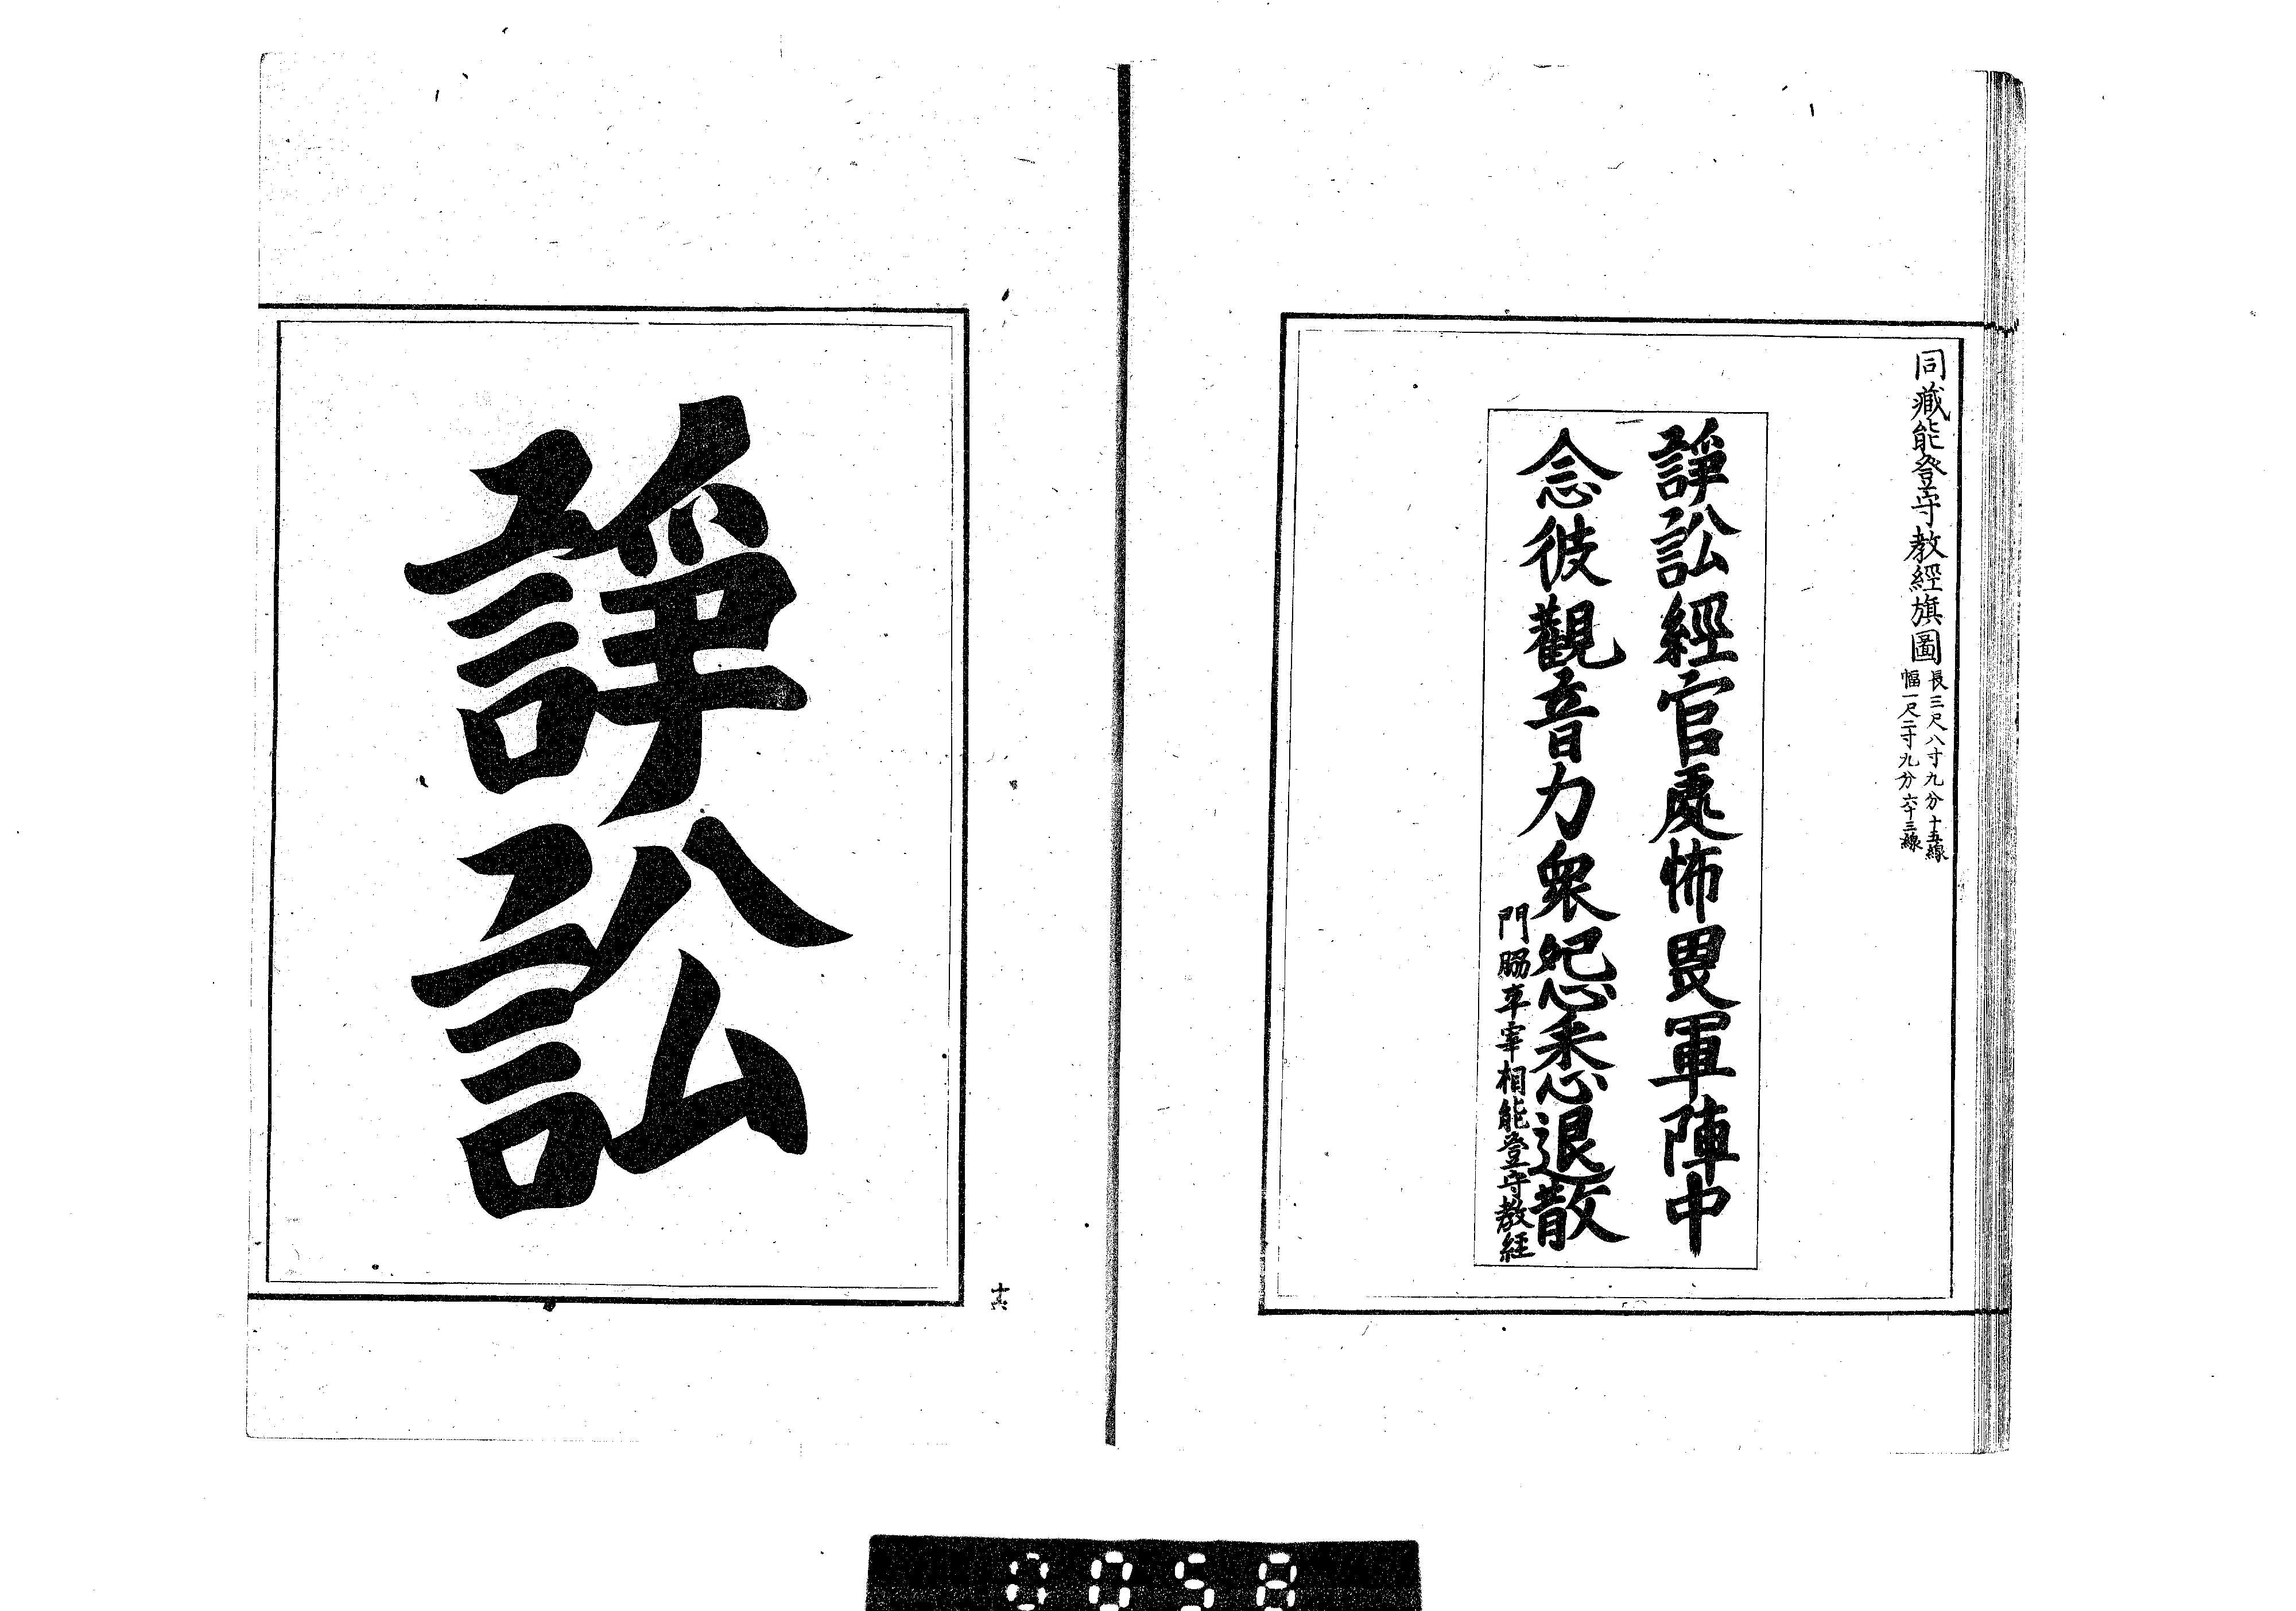 同藏能登守教經旗圖
長三尺八寸九分 十五線
幅一尺二寸九分 六十三線
諍訟經官處怖畏軍陣中
念彼觀音力衆怨悉退散
門脇平宰相能登守教經
諍訟
十六
0058